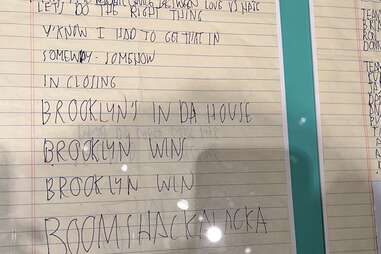 BETWEEN LOVE VS HATE
LET'S DO THE RIGHT THING
Y'KNOW I HAD TO GET THAT IN
SOMEWAY - SOMEHOW
IN CLOSING
BROOKLYN'S IN DA HOUSE
BROOKLYN WINS
BROOKLYN WIN
BOOMSHACKALACKA